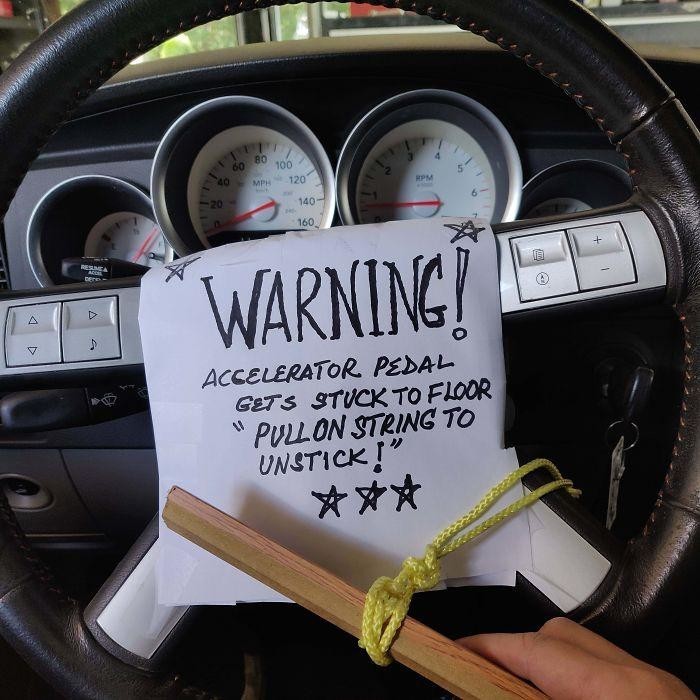 20 40 60 80 100 120 140 160
MPH
1 2 3 4 5 6 7
RPM
RESUME
ACCEL
WARNING!
ACCELERATOR PEDAL
GETS STUCK TO FLOOR
" PULL ON STRING TO
UNSTICK!"